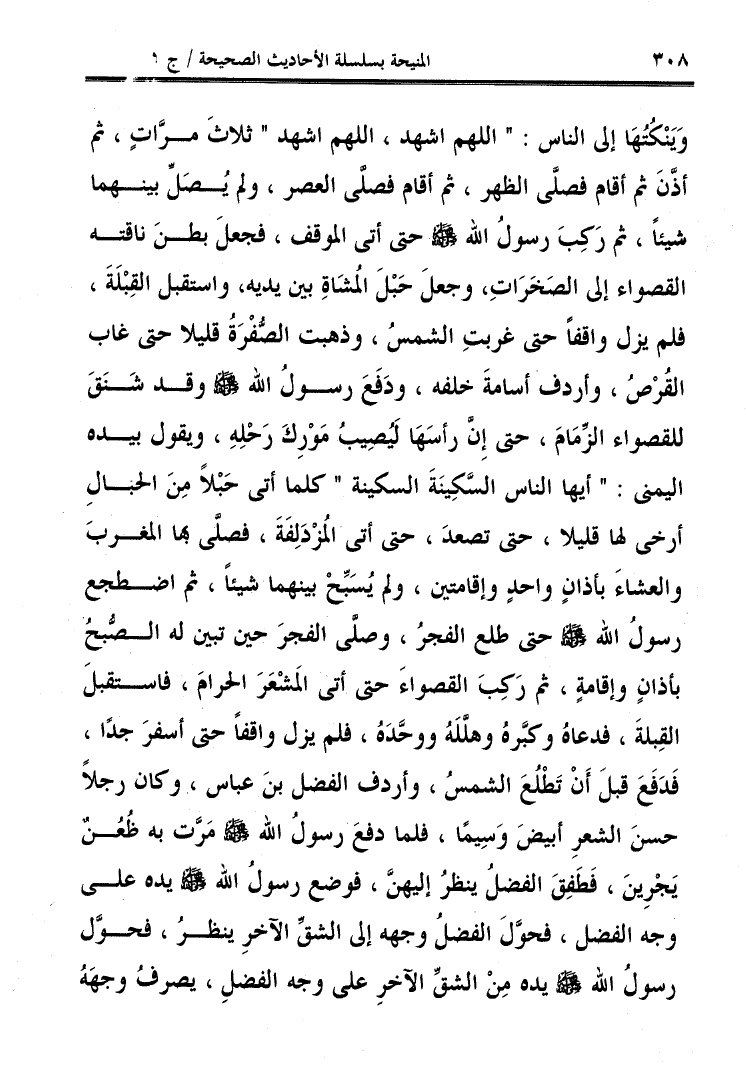 ٣٠٨ المنيحة بسلسلة الأحاديث الصحيحة / ج ٩
وَيَنْكُتُهَا إلى الناس : " اللهم اشهد ، اللهم اشهد " ثلاثَ مـرَّاتٍ ، ثم
أذَّنَ ثم أقام فصلَّى الظهر ، ثم أقام فصلَّى العصر ، ولم يُـصَلِّ بينـهما
شيئاً ، ثم رَكِبَ رسولُ الله ﷺ حتى أتى الموقف ، فجعلَ بطـنَ ناقتـه
القصواء إلى الصَخَرَاتِ، وجعلَ حَبْلَ المُشَاةِ بين يديه، واستقبل القِبْلَةَ ،
فلم يزل واقفاً حتى غربتِ الشمسُ ، وذهبت الصُّفْرَةُ قليلا حتى غاب
القُرْصُ ، وأردف أسامةَ خلفه ، ودَفَعَ رسـولُ الله ﷺ وقـد شَـنَقَ
للقصواء الزِّمَامَ ، حتى إنَّ رأسَهَا لَيُصِيبُ مَوْرِكَ رَحْلِهِ ، ويقول بيـده
اليمنى : " أيها الناس السَّكِينَةَ السكينة " كلما أتى حَبْلاً مِنَ الحَبَـالِ
أرخى لها قليلا ، حتى تصعدَ ، حتى أتى المُزْدَلِفَةَ ، فصلَّى بها المغـربَ
والعشاءَ بأذانٍ واحدٍ وإقامتين ، ولم يُسَبِّحْ بينهما شيئاً ، ثم اضـطجع
رسولُ الله ﷺ حتى طلع الفجرُ ، وصلَّى الفجرَ حين تبين له الـصُّبحُ
بأذانٍ وإقامةٍ ، ثم رَكِبَ القصواءَ حتى أتى المَشْعَرَ الحرامَ ، فاسـتقبلَ
القِبلةَ ، فدعاهُ وكبَّرهُ وهلَّلَهُ ووحَّدَهُ ، فلم يزل واقفاً حتى أسفرَ جدًا ،
فَدَفَعَ قبلَ أنْ تَطْلُعَ الشمسُ ، وأردف الفضل بنَ عباس ، وكان رجلاً
حسنَ الشعرِ أبيضَ وَسِيمًا ، فلما دفعَ رسولُ الله ﷺ مَرَّت به ظُعُـنٌ
يَجْرِينَ ، فَطَفِقَ الفضلُ ينظرُ إليهنَّ ، فوضع رسولُ الله ﷺ يده علـى
وجه الفضل ، فحوَّلَ الفضلُ وجهه إلى الشقِّ الآخرِ ينظـرُ ، فحـوَّل
رسولُ الله ﷺ يده مِنْ الشقِّ الآخرِ على وجه الفضلِ ، يصرفُ وجهَهُ